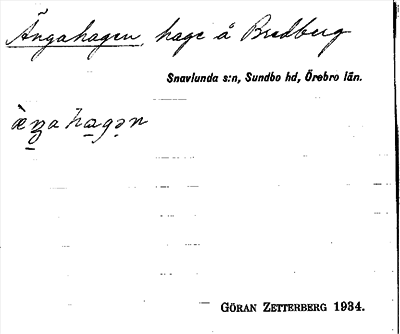 Ängahagen, hage å Bredberg
Snavlunda s:n, Sundbo hd, Örebro län.
GÖRAN ZETTERBERG 1934.